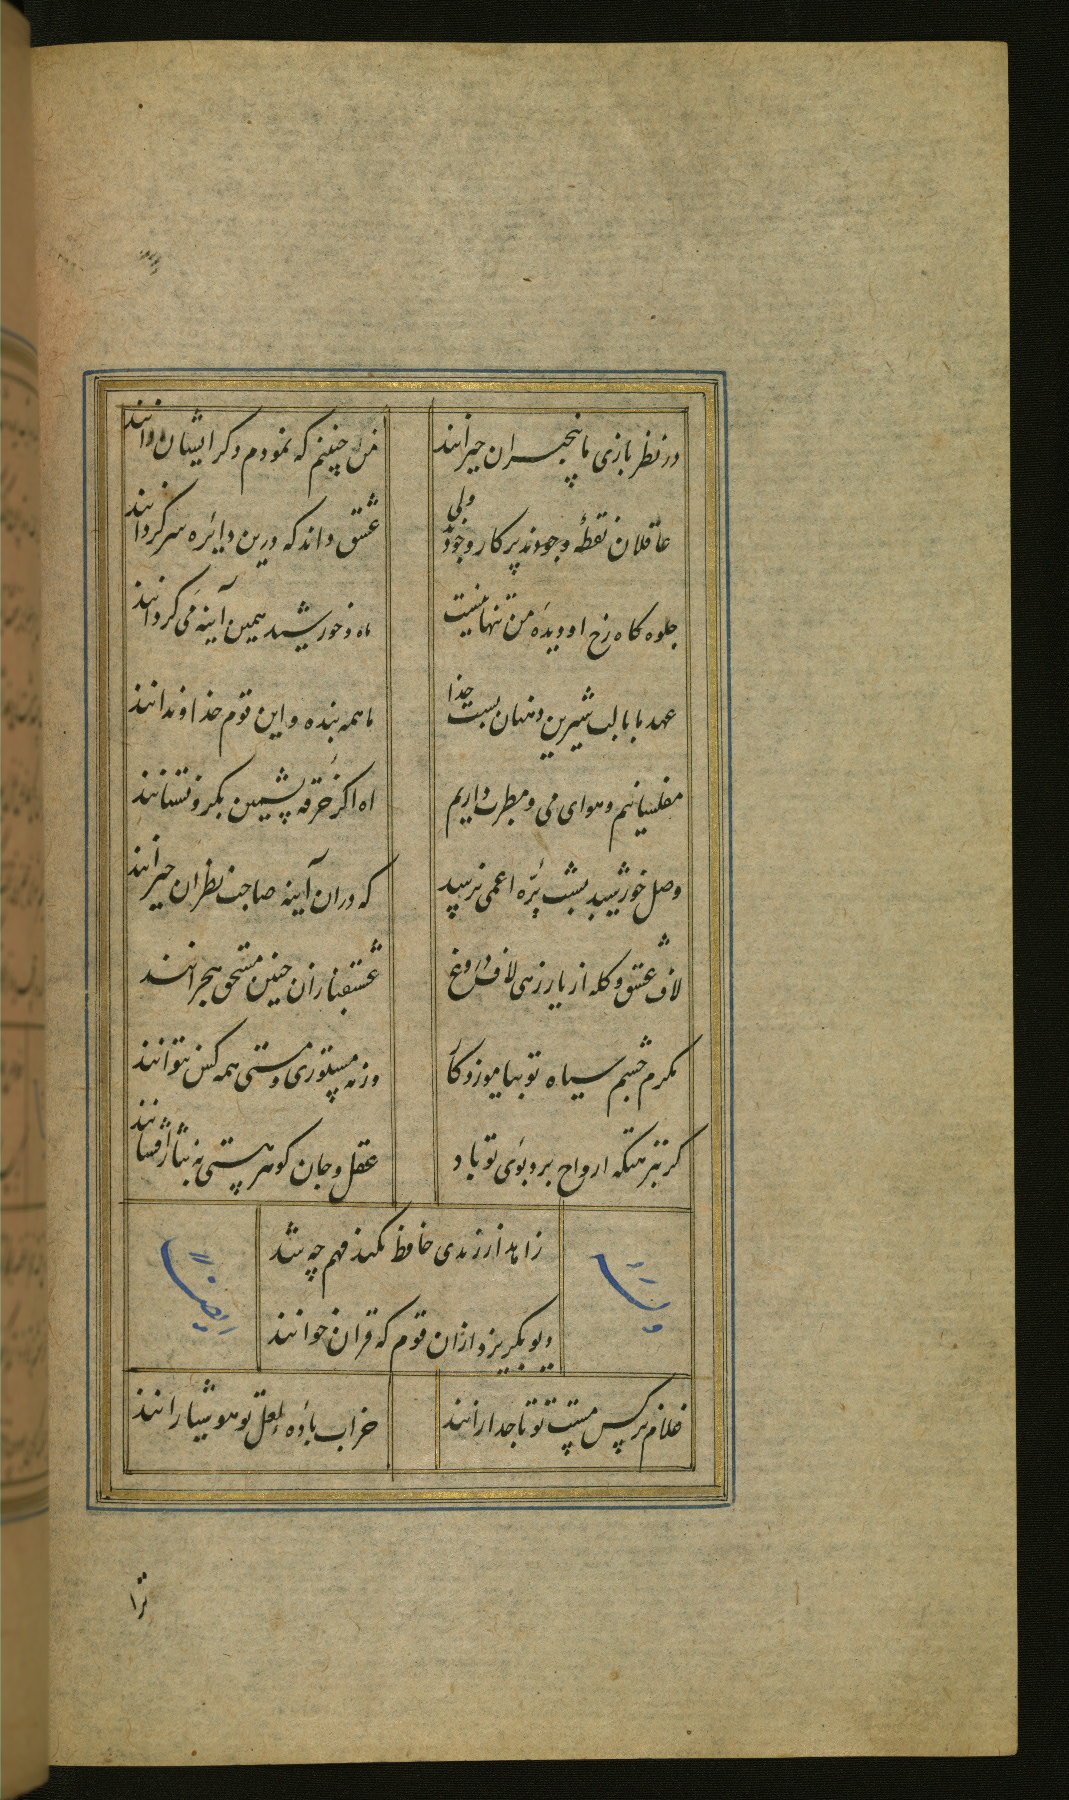 در نظر بازی ما بیخبران حیرانند
من چنینم که نمودم دگر ایشان دانند
عاقلان نقطهٔ وجودند پرکار وجود ولی
عشق داند که درین دایره سرگردانند
جلوه کاه رخ او دیدهٔ من تنها نیست
ماه و خورشید همین آینه می گردانند
عهد ما با لب شیرین دهنان بست خدا
ما همه بنده و این قوم خداوندانند
مفلسانیم و هوای می و مطرب داریم
اه اگر خرقه پشمین بگرو نستانند
وصل خورشید بشب پرّه اعمی نرسد
که دران آینه صاحب نظران حیرانند
لاف عشق و کله از یار زهی لاف دروغ
عشقبازان چنین مستحق هجرانند
مکرم چشم سیاه تو بیاموزد کار
ورنه مستوری و مستی همه کس نتوانند
گر بنزهتکه ارواح برد بوی تو باد
عقل و جان گوهر هستی به نثار افشانند
زاهد ار رندی حافظ نکند فهم چه شد
دیو بگریزد ازان قوم که قران خوانند
وله
ایضاً
غلام نرگس مست تو تاجدارانند
خراب بادهٔ لعل تو هوشیارانند
ترا